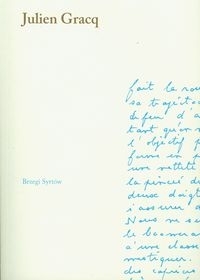 Julien Gracq
Brzegi Syrtów
fait la rou
sa trajecto
de feu d'a
tant qu'on
l'objectif p
ferme en p
une netteté
la pincée d
deux doigts
s'assurer d
Nous ne se
le boomera
d'une classe
mastiquer.
des capsules